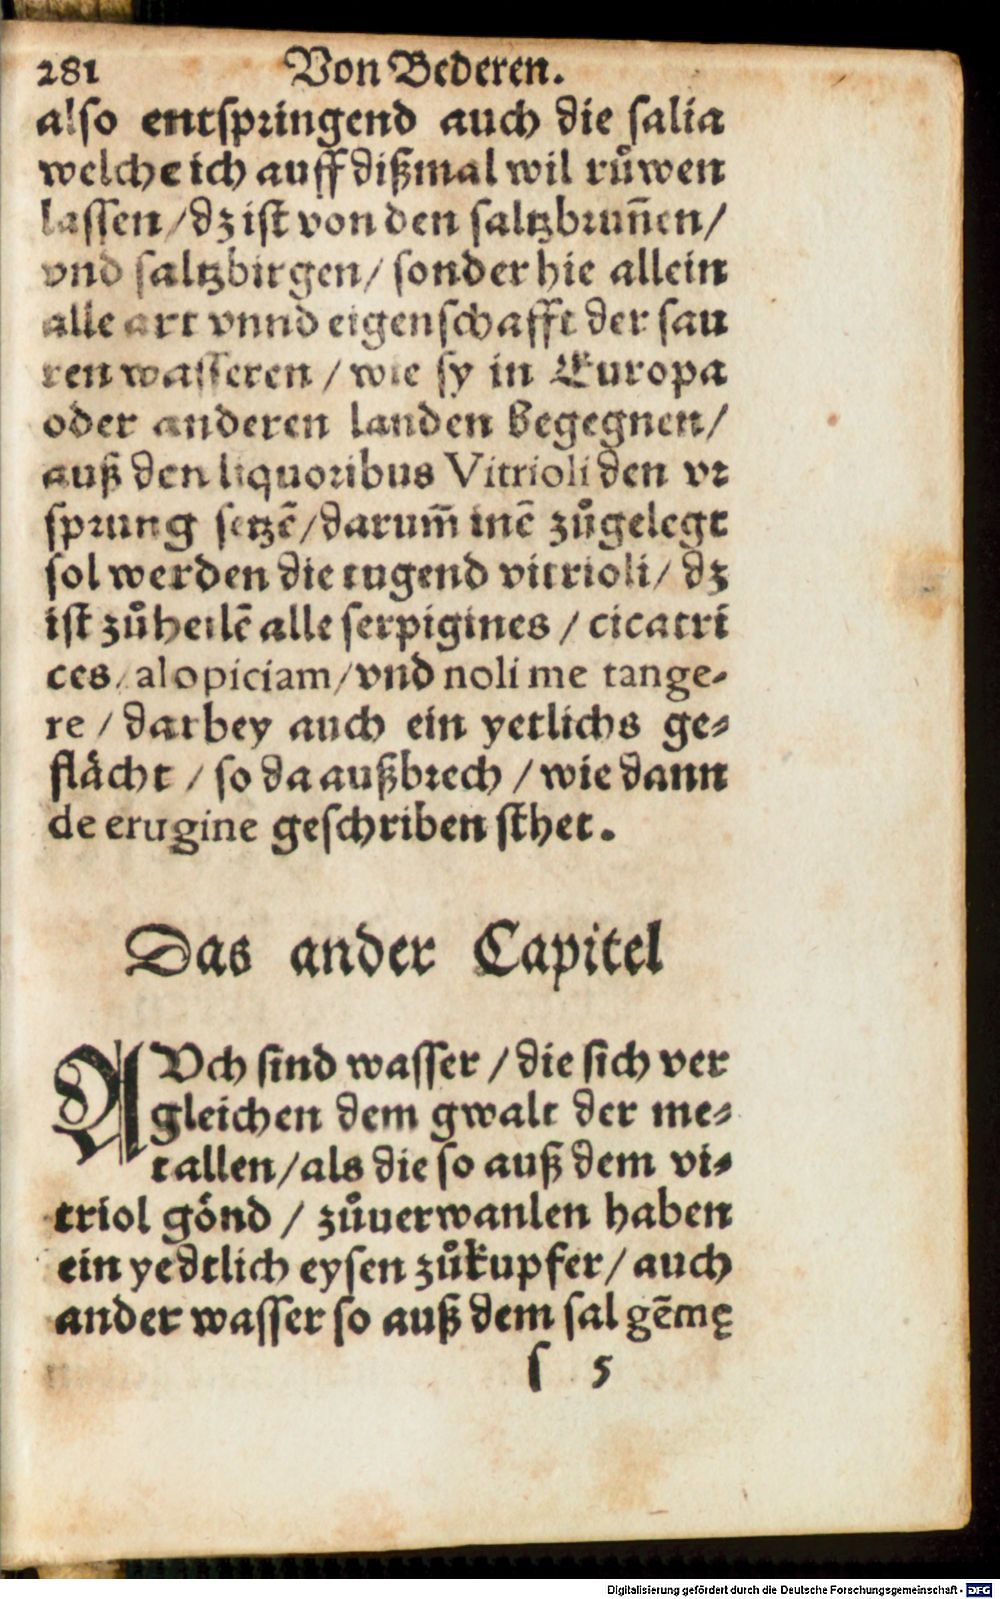 281 Von Bederen.
also entspringend auch die salia
welche ich auff dißmal wil růwen
lassen / dz ist von den saltzbrun̄en /
vnd saltzbirgen / sonder hie allein
alle art vnnd eigenschafft der sau
ren wasseren / wie sy in Europa
oder anderen landen begegnen /
auß den liquoribus Vitrioli den vr
sprung setzē / darum̄ inē zůgelegt
sol werden die tugend vitrioli / dz
ist zůheilē alle serpigines / cicatri
ces / alopiciam / vnd noli me tange-
re / darbey auch ein yetlichs ge-
flächt / so da außbrech / wie dann
de erugine geschriben sthet.
Das ander Capitel
AVch sind wasser / die sich ver
gleichen dem gwalt der me-
tallen / als die so auß dem vi-
triol gönd / zůuerwanlen haben
ein yedtlich eysen zůkupfer / auch
ander wasser so auß dem sal gēmę
s 5
Digitalisierung gefördert durch die Deutsche Forschungsgemeinschaft - DFG